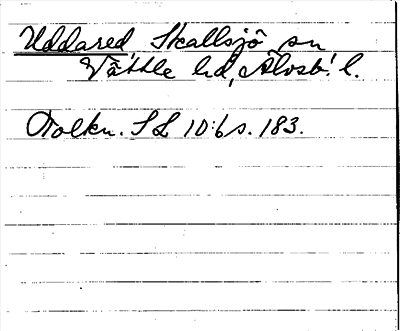 Uddared Skallsjö sn
Vättle hd, Älvsb. l.
Tolkn. SL 10:6 s. 183.